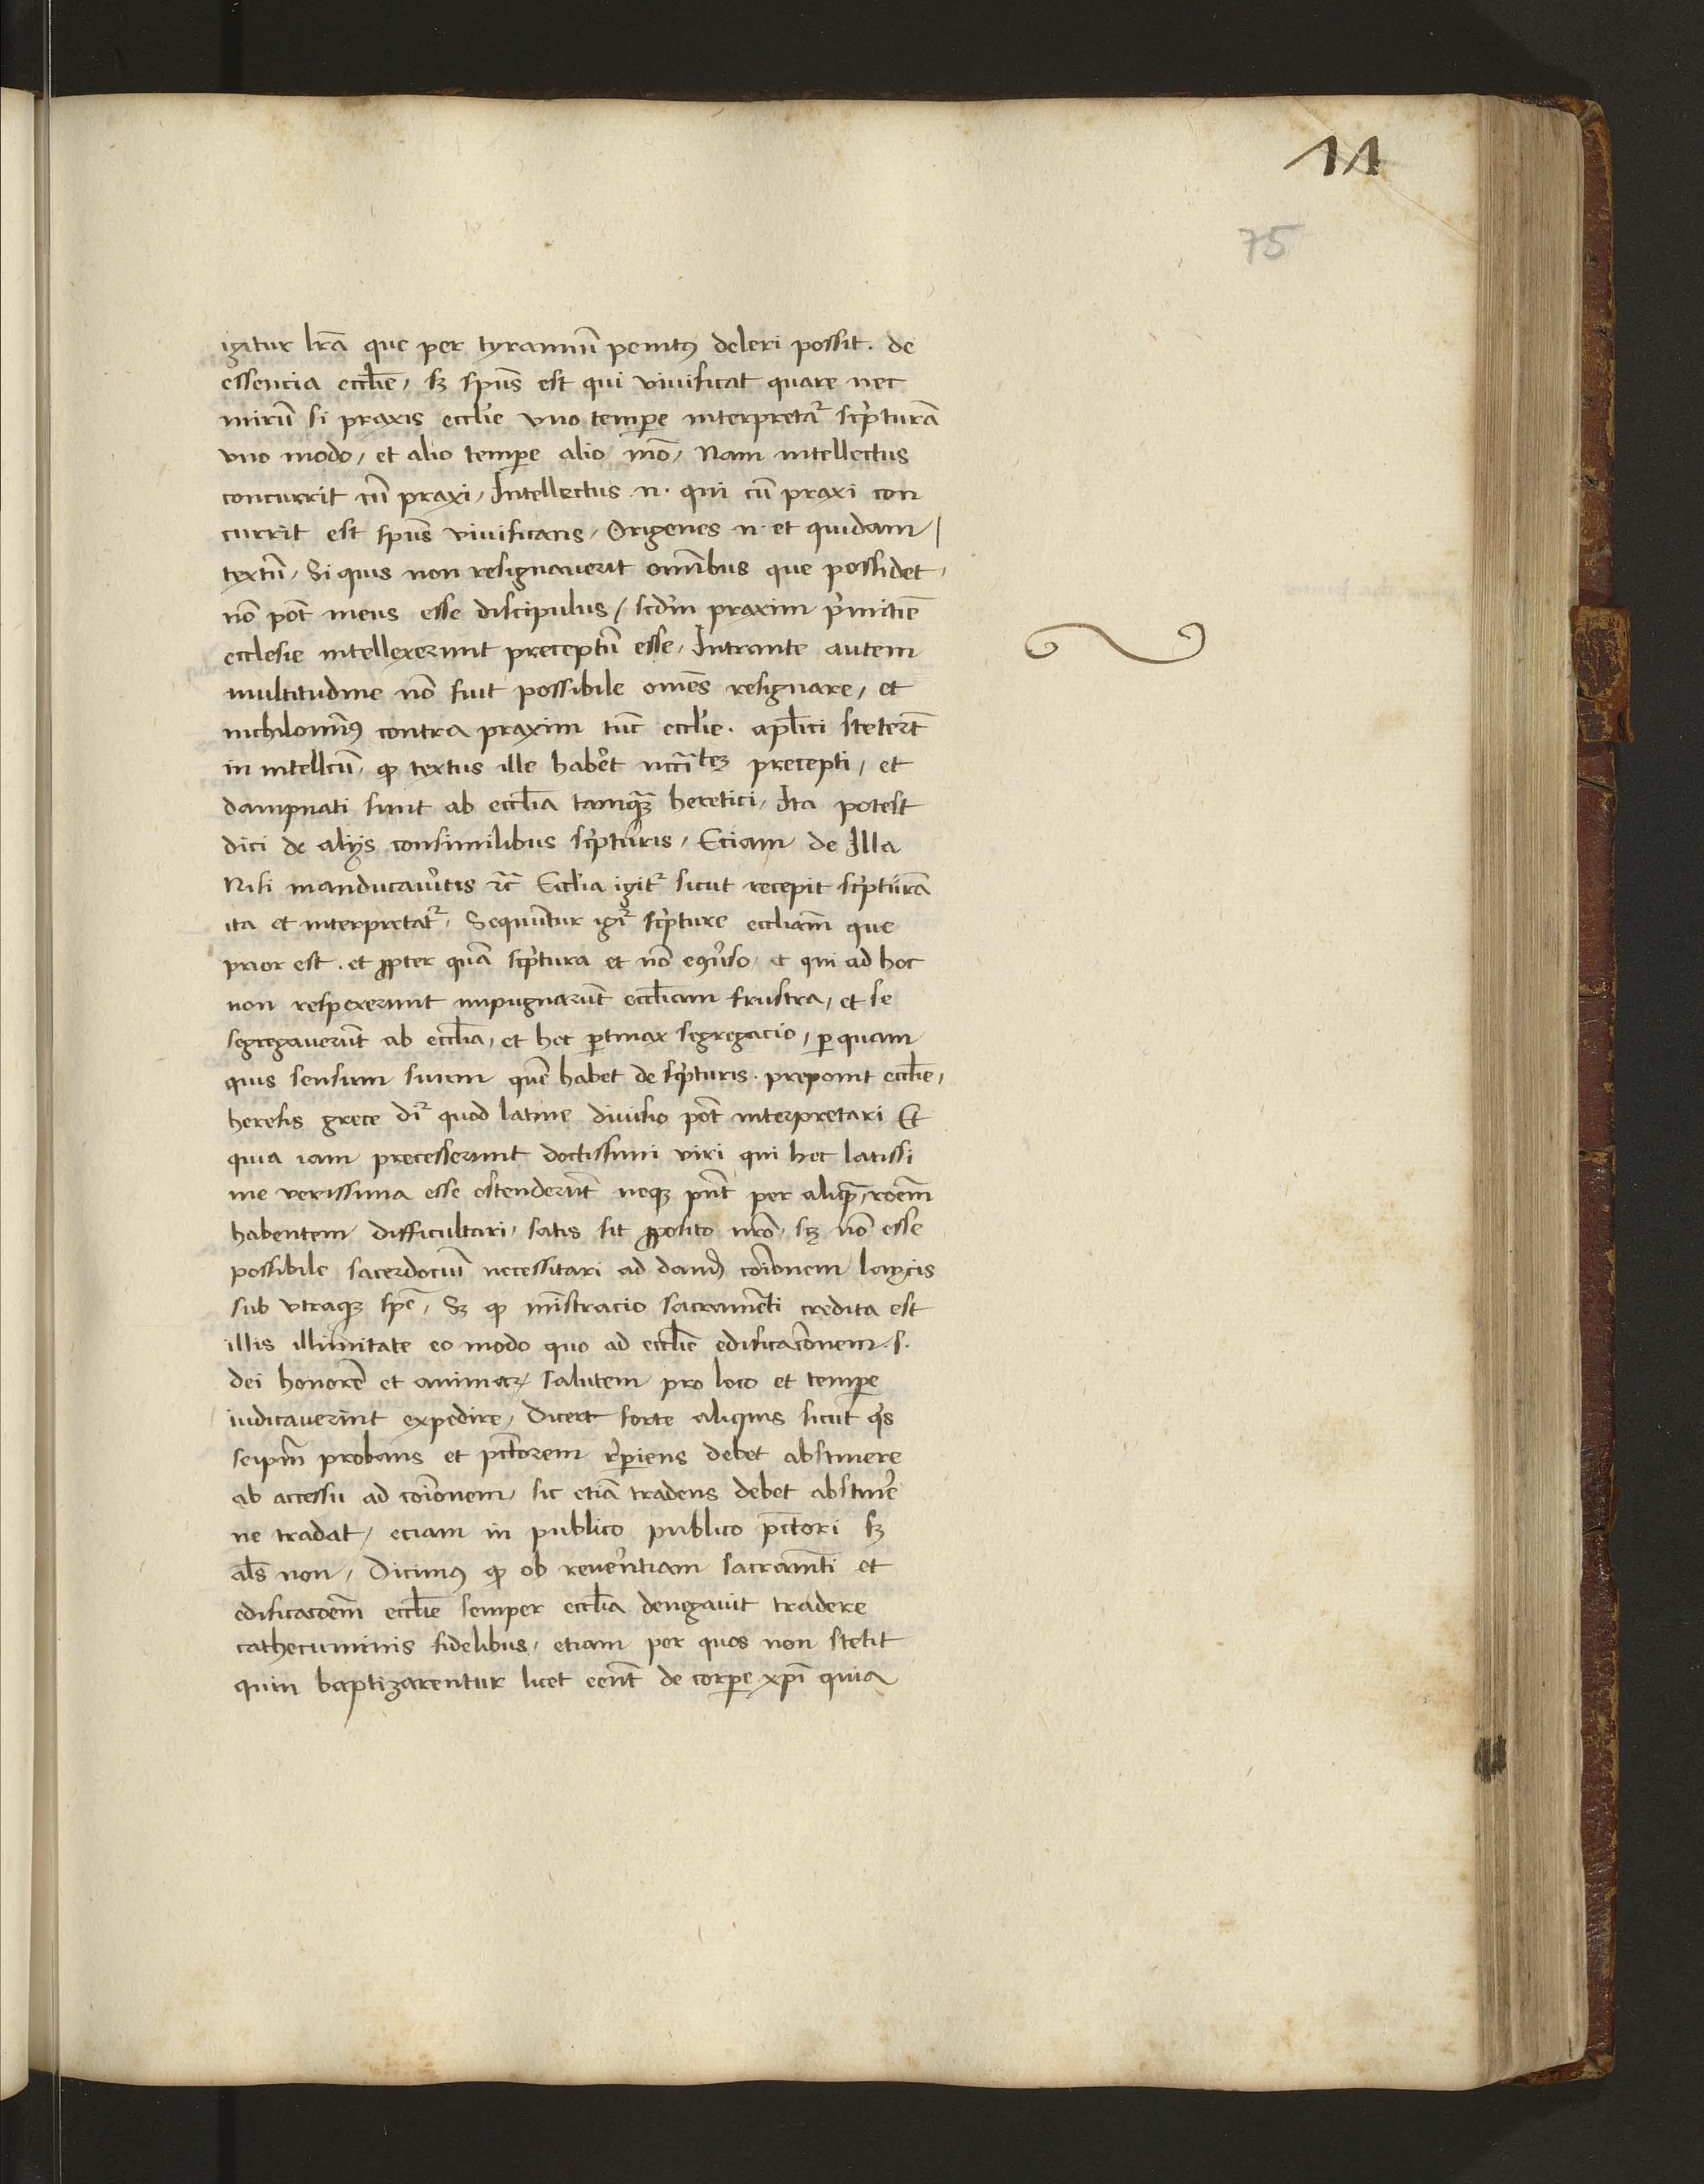 11
75
igitur lrã que per tyrannũ penitꝰ deleri possit. de
essencia eccl̃ie, sꝫ sp̃us est qui viuificat quare nec
mirũ si praxis eccl̃ie vno temꝑe interpretat᷑ scͥpturã
vno modo, et alio temꝑe alio mõ, Nam intellectus
concurrit cũ praxi, Intellectus .n. qui cũ praxi con
currit est sp̃us viuificans, Origenes .n. et quidam
textũ, Si quis non resignauerit om̃ibus que possidet,
nõ põt meus esse discipulus, scd̃m praxim pͥmitiuẽ
ecclesie intellexerunt preceptũ esse, Intrante autem
multitudine nõ fuit possibile om̃es resignare, et
nichilominꝰ contra praxim tũc eccl̃ie. apl̃ici steterũt
in intellc̃tũ, ꝙ textus ille hab̾et nccĩtatẽ precepti, et
dampnati sunt ab eccl̃ia tamqꝫ heretici, Ita potest
dici de alijs consimilibus scͥpturis, Eciam de Illa
Nisi manducau̾itis ⁊c̃ Eccl̃ia igit᷑ sicut recepit scͥpturã
ita et interpretat᷑, Sequuntur igit᷑ scͥpture eccl̃iam que
prior est. et ꝓpter quã scͥptura et nõ eꝯu̾so, et qui ad hoc
non respexerunt impugnarũt eccl̃iam frustra, et se
segregauerũt ab eccl̃ia, et hec ꝑtinax segregacio, ꝑ quam
quis sensum suum quẽ habet de scͥpturis. preponit eccl̃ie,
heresis grece dr̃ quod latine diuisio põt interpretari Et
quia iam precesserunt doctissimi viri qui hec latissi
me verissima esse ostenderũt neqꝫ pñt per aliquã, rõem
habentem difficultari, satis sit ꝓposito nrõ, sꝫ nõ esse
possibile sacerdociũ necessitari ad dand̃ cõionem laycis
sub vtraqꝫ spẽ, Sꝫ ꝙ mĩstracio sacramẽti credita est
illis illimitate eo modo quo ad eccl̃ie edificacõnem .s.
dei honorẽ et animaꝝ salutem pro loco et temꝑe
iudicauerint expedire, Diceret forte aliquis sicut qͥs
seipm̃ probans et pctõrem r̾piens debet abstinere
ab accessu ad cõionem, sic etiã tradens debet abstin̾e
ne tradat, eciam in publico publico pctõri sꝫ
al̃s non, Dicimꝰ ꝙ ob reuerẽtiam sacramẽti et
edificacõem eccl̃ie semper eccl̃ia denegauit tradere
cathecuminis fidelibus, etiam per quos non stetit
quin baptizarentur licet eẽnt de corꝑe xp̃i quia